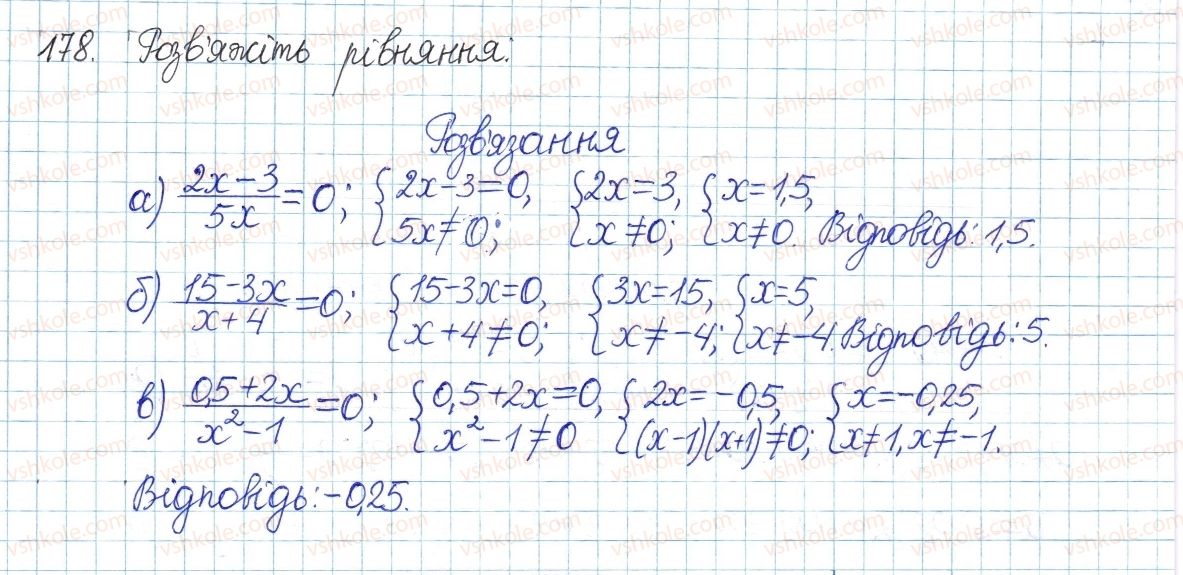 178. Розв'яжіть рівняння:
Розв'язання
а) (2x-3)/(5x) = 0; {2x-3=0, 5x≠0; {2x=3, x≠0; {x=1,5, x≠0. Відповідь: 1,5.
б) (15-3x)/(x+4) = 0; {15-3x=0, x+4≠0; {3x=15, x≠-4; {x=5, x≠-4. Відповідь: 5.
в) (0,5+2x)/(x²-1) = 0; {0,5+2x=0, x²-1≠0 {2x=-0,5, (x-1)(x+1)≠0; {x=-0,25, x≠1, x≠-1.
Відповідь: -0,25.